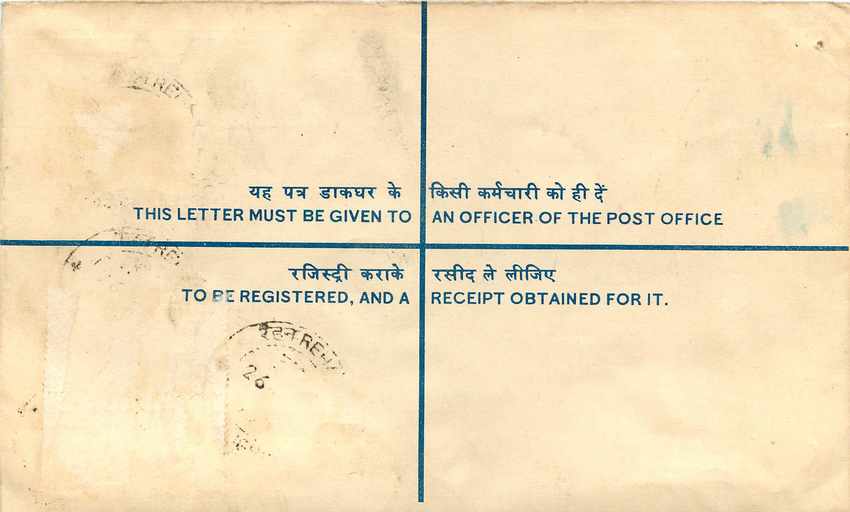 यह पत्र डाकघर के किसी कर्मचारी को ही दें
THIS LETTER MUST BE GIVEN TO AN OFFICER OF THE POST OFFICE
रजिस्ट्री कराके रसीद ले लीजिए
TO BE REGISTERED, AND A RECEIPT OBTAINED FOR IT.
26